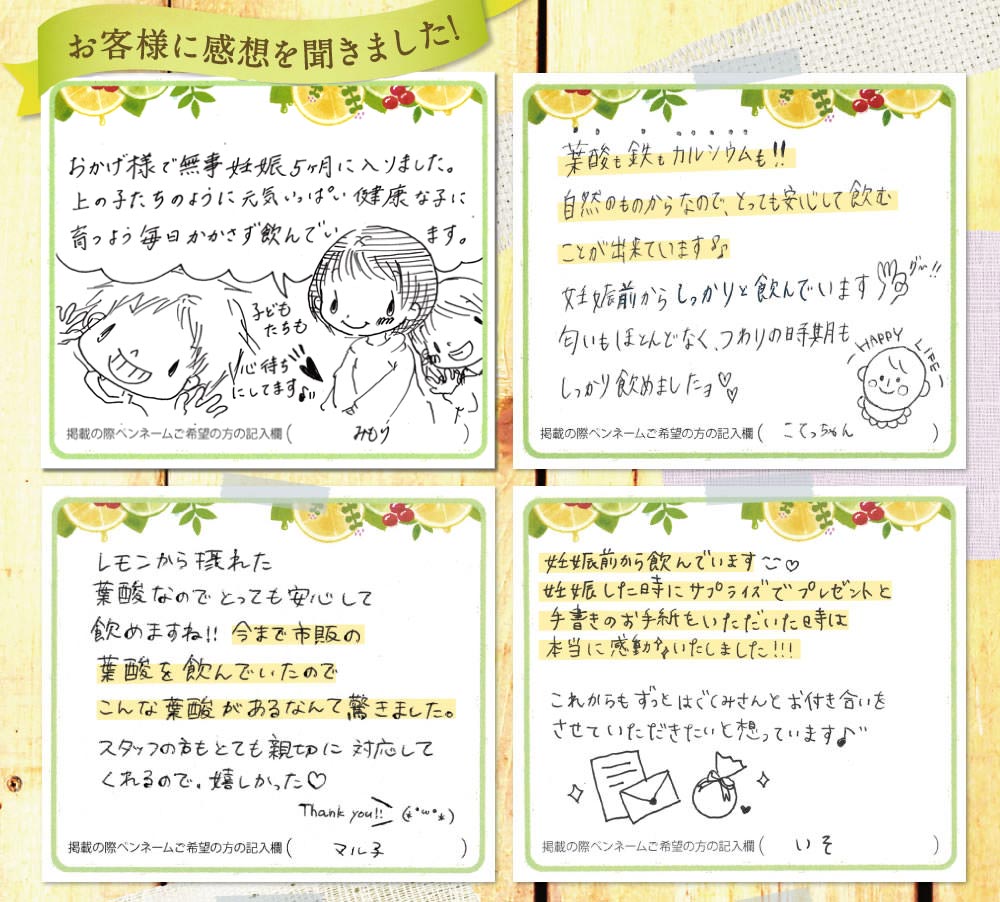 お客様に感想を聞きました!
おかげ様で無事妊娠5ヶ月に入りました。
上の子たちのように元気いっぱい健康な子に
育つよう毎日かかさず飲んでいます。
子ども
たちも
心待ち
にしてます♪
掲載の際ペンネームご希望の方の記入欄( みもり )
葉酸も鉄もカルシウムも!!
自然のものからなので、とっても安心して飲む
ことが出来ています♪
妊娠前からしっかりと飲んでいます グー!!
匂いもほとんどなく、つわりの時期も
しっかり飲めましたョ♡♡
HAPPY LIFE
掲載の際ペンネームご希望の方の記入欄( こてっちゃん )
レモンから摂れた
葉酸なのでとっても安心して
飲めますね!! 今まで市販の
葉酸を飲んでいたので
こんな葉酸があるなんて驚きました。
スタッフの方もとても親切に対応して
くれるので。嬉しかった♡
Thank you!! (*˙ω˙*)
掲載の際ペンネームご希望の方の記入欄( マル子 )
妊娠前から飲んでいます♡
妊娠した時にサプライズでプレゼントと
手書きのお手紙をいただいた時は
本当に感動いたしました!!!
これからもずっとはぐくみさんとお付き合いを
させていただきたいと想っています♪
掲載の際ペンネームご希望の方の記入欄( いそ )